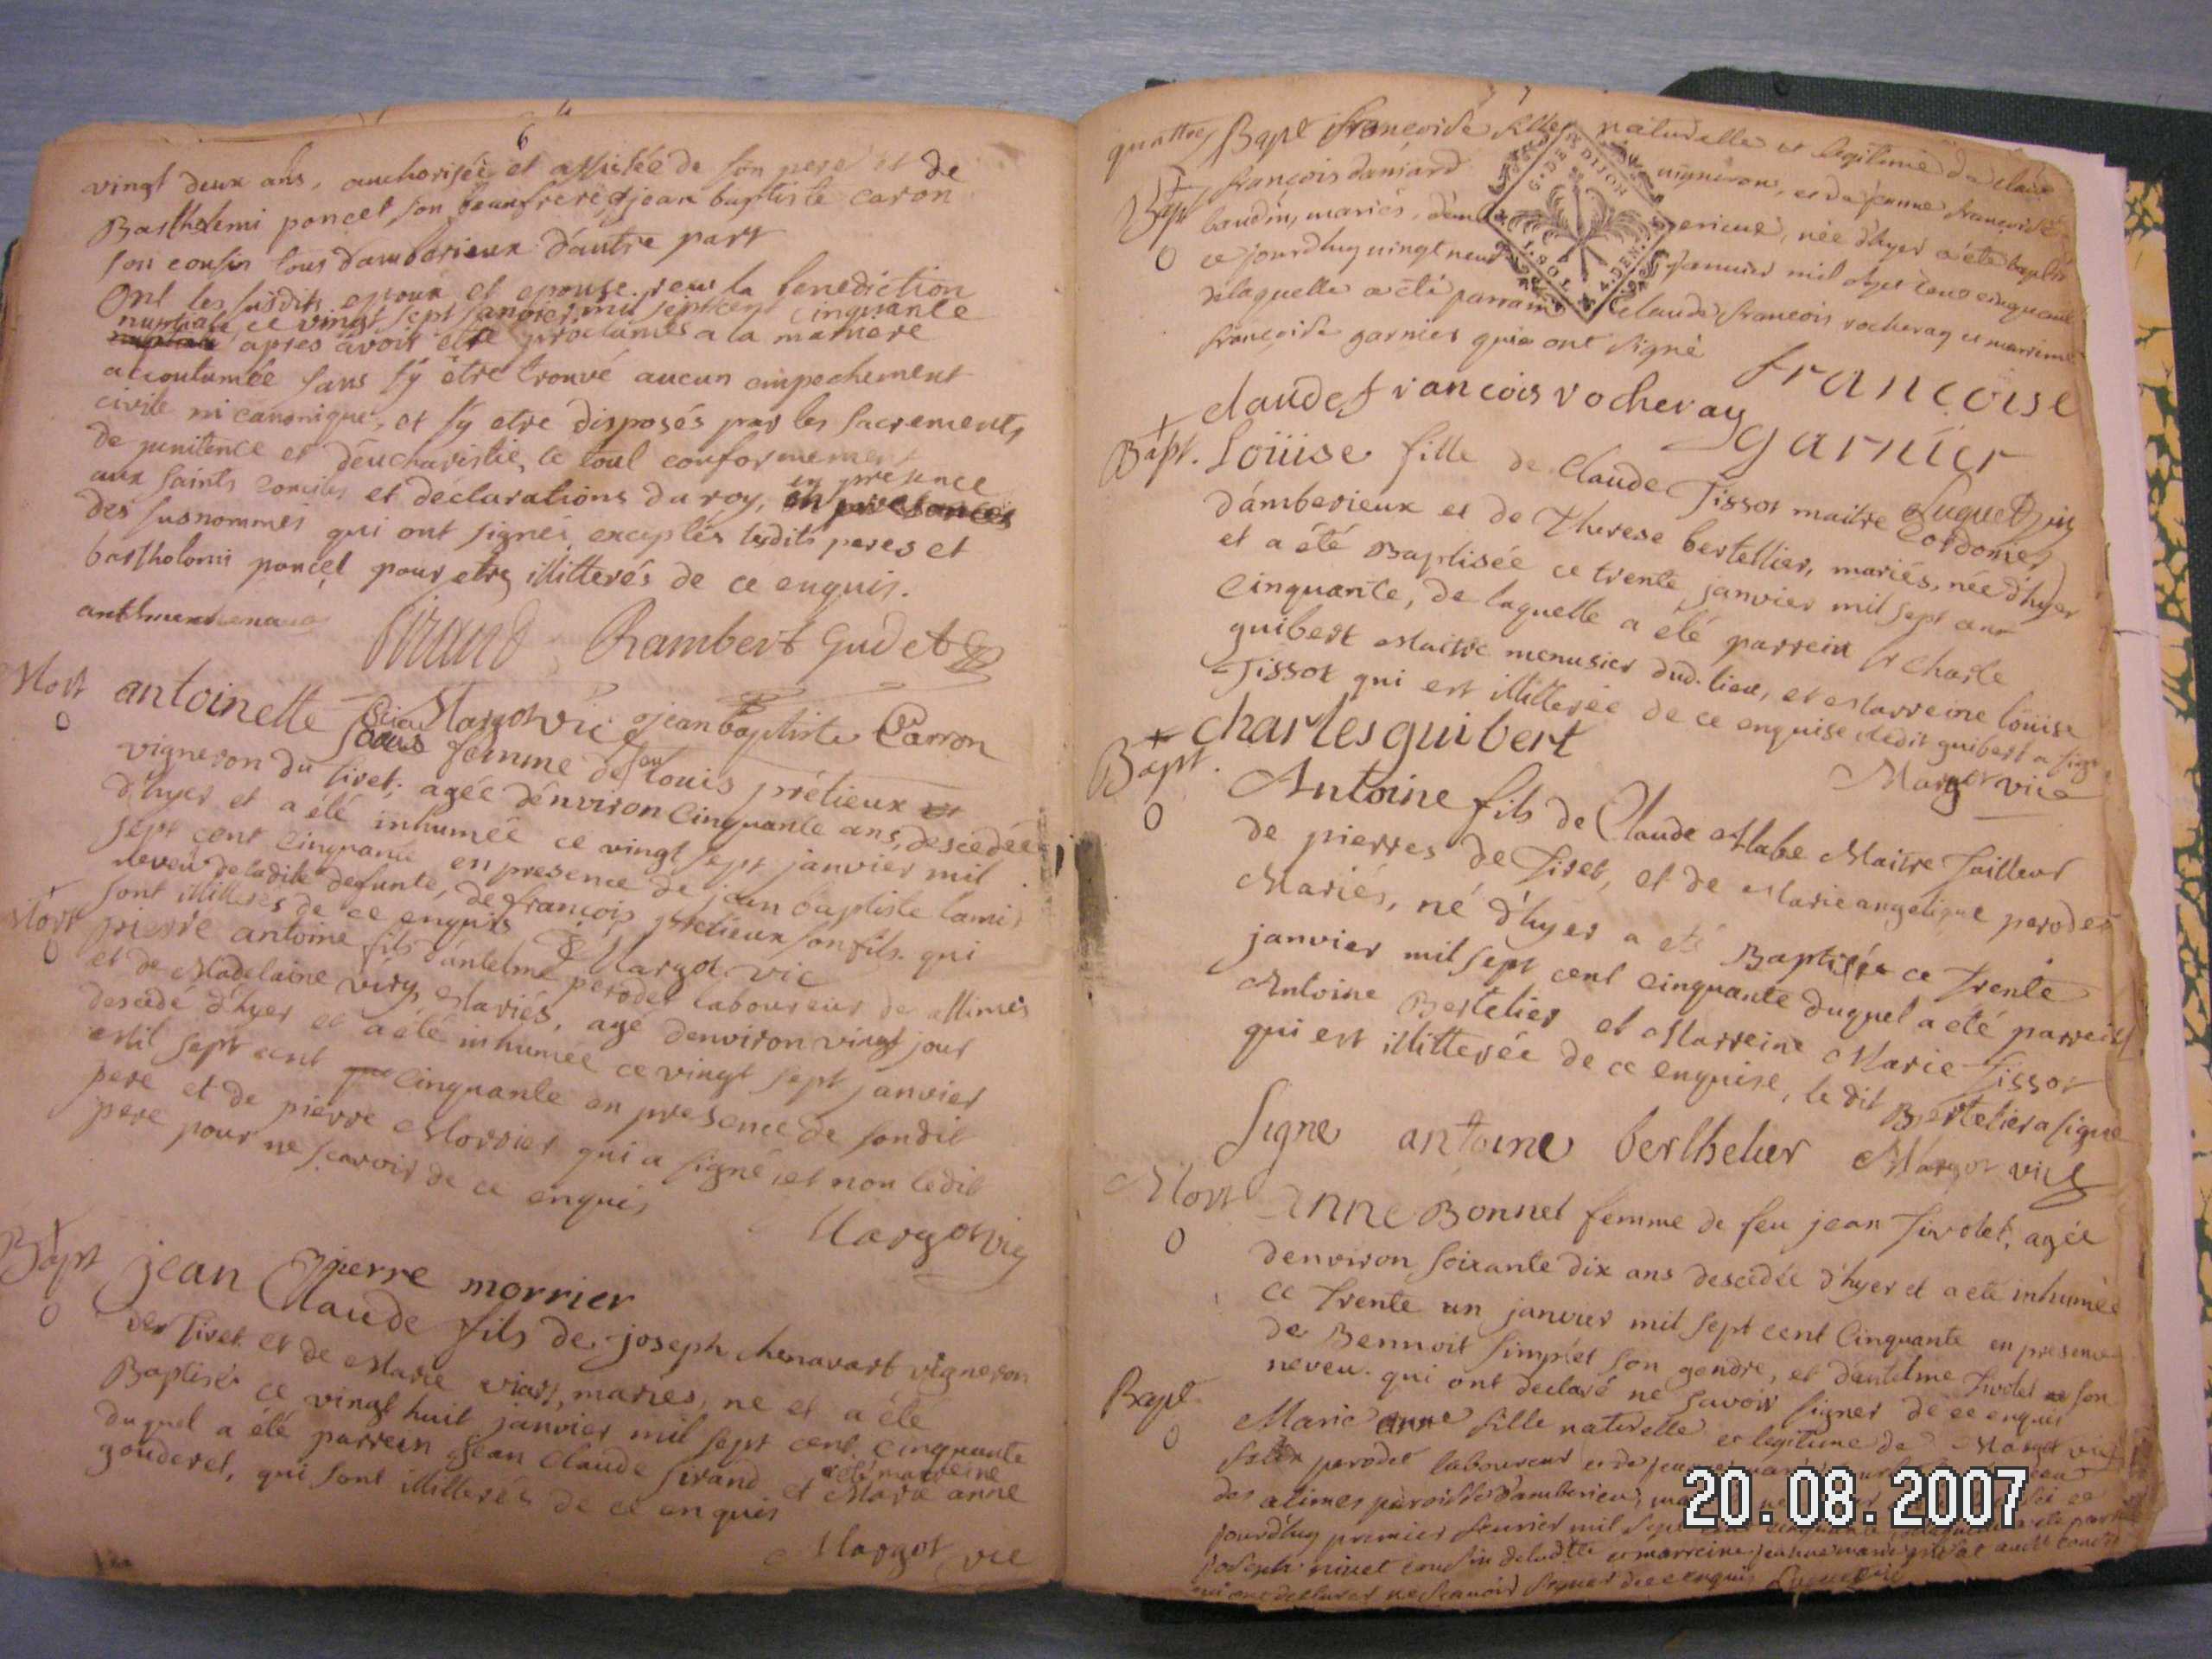 6
vingt deux ans, authorisée et assistée de son pere et de
Barthelemi poncet son beaufrere, et jean baptiste caron
son cousin tous d'amberieux d'autre part
Ont les susdits epoux et epouse receu la benediction
nuptiale ce vingt sept janvier mil sept cent cinquante
apres avoir été proclamés a la maniere
accoutumée sans s'y être trouvé aucun empechement
civile ni canonique, et s'y etre disposés par les sacrements
de penitence et d'eucharistie, le tout conformement
aux saints conciles et déclarations du roy, en presence
des susnommés qui ont signés exceptés lesdits peres et
bartholomi poncet pour etre illitterés de ce enquis.
Sirand Rambert Gudet
Margot vic jean baptiste Carron
Mort antoinette femme de feu louis prétieux
vigneron du tiret; agée d'environ cinquante ans, descedée
d'hyer et a été inhumée ce vingt sept janvier mil
sept cent cinquante en presence de jean baptiste lami
neveu de ladite defunte, de françois pretieux son fils. qui
sont illitteres de ce enquis Margot vic
Mort pierre antoine fils d'antelme perodet laboureur des allimes
et de Madelaine viry, Mariés, agé denviron vingt jour
descedé d'hyer et a été inhumée ce vingt sept janvier
Mil sept cent cinquante en presence de sondit
pere et de pierre Morrier qui a signé et non ledit
pere pour ne sçavoir de ce enquis
Margot vic
jean pierre morrier
Bapt Claude fils de joseph chenavart vigneron
de Tiret et de Marie viart, mariés, ne et a été
Baptisé ce vingt huit janvier mil sept cent cinquante
duquel a été parrein jean Claude Sirand et a été marreine Marie anne
gouderet, qui sont illitterés de ce enquis
Margot vic
7
Bapt françoise fille naturelle et legitime de claude
françois daniard vigneron, et de jeanne françoise
Bapt baudin, mariés, née d'hyer a été baptisé
ce jourdhuy vingt neuf janvier mil sept cent cinquante
de laquelle a été parrain Claude françois rocheray et marreine
françoise garnier qui ont signé
claude francois rocheray francoise garnier
Bapt. Loüise fille de Claude Tissot maitre Cordonier
d'amberieux et de Therese bertellier, mariés, née d'hyer
et a été Baptisée ce trente janvier mil sept cent
Cinquante, de laquelle a été parrein sr Charle
guibert Maitre menusier dud. lieu, et Marreine loüise
Tissot qui est illitterée de ce enquise ledit guibert a signé
charles guibert
Margot vic
Bapt. Antoine fils de Claude Labe Maitre Tailleur
de pierres de Tiret, et de Marie angelique perodet
Mariés, né d'hyer a eté Baptisée ce trente
janvier mil sept cent cinquante duquel a été parrein
Antoine Bertelier et Marreine Marie Tissot
qui est illitterée de ce enquise, le dit Bertelier a signé
Signe antoine berthelier Margot vic
Mort Anne Bonnet femme de feu jean Tivolet, agée
denviron soixante dix ans descedée d'hyer et a été inhumée
ce trente un janvier mil sept cent Cinquante en presence
de Bennoit simplet son gendre, et d'antelme Tivolet son
neveu. qui ont declaré ne savoir signer de ce enquis
Margot vic
Bapt. Marie anne fille naturelle et legitime de
perodet laboureur et de
des alimes paroisse d'amberieu,
jourd'huy premier fevrier mil sept cent cinquante,
joseph nivet cousin de ladite et marreine jeanne marie
qui ont declarer ne scavoir signer de ce enquis
G. DE DIJON
1. SOL 4. DEN.
20.08.2007